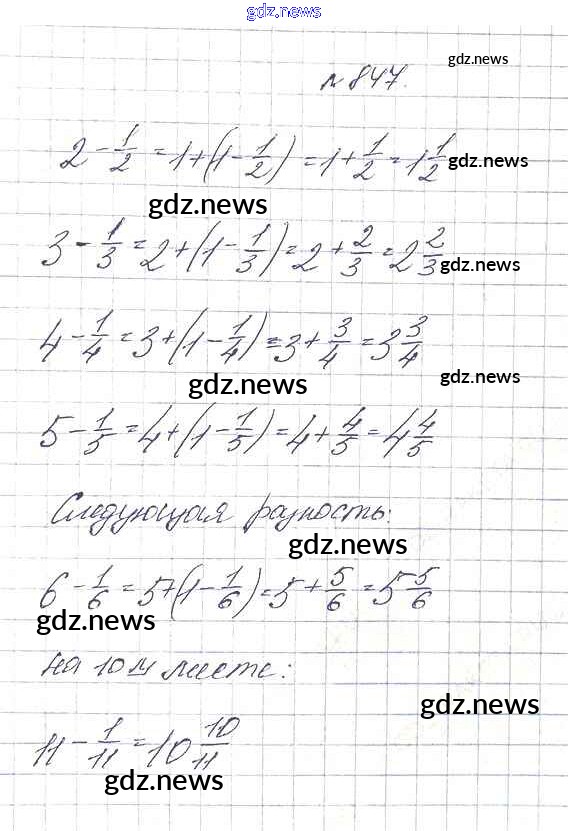 gdz.news
gdz.news
№ 847.
2 - 1/2 = 1 + (1 - 1/2) = 1 + 1/2 = 1 1/2
gdz.news
gdz.news
3 - 1/3 = 2 + (1 - 1/3) = 2 + 2/3 = 2 2/3
gdz.news
4 - 1/4 = 3 + (1 - 1/4) = 3 + 3/4 = 3 3/4
gdz.news
gdz.news
5 - 1/5 = 4 + (1 - 1/5) = 4 + 4/5 = 4 4/5
Следующая разность:
gdz.news
6 - 1/6 = 5 + (1 - 1/6) = 5 + 5/6 = 5 5/6
gdz.news
на 10м месте:
gdz.news
11 - 1/11 = 10 10/11
gdz.news